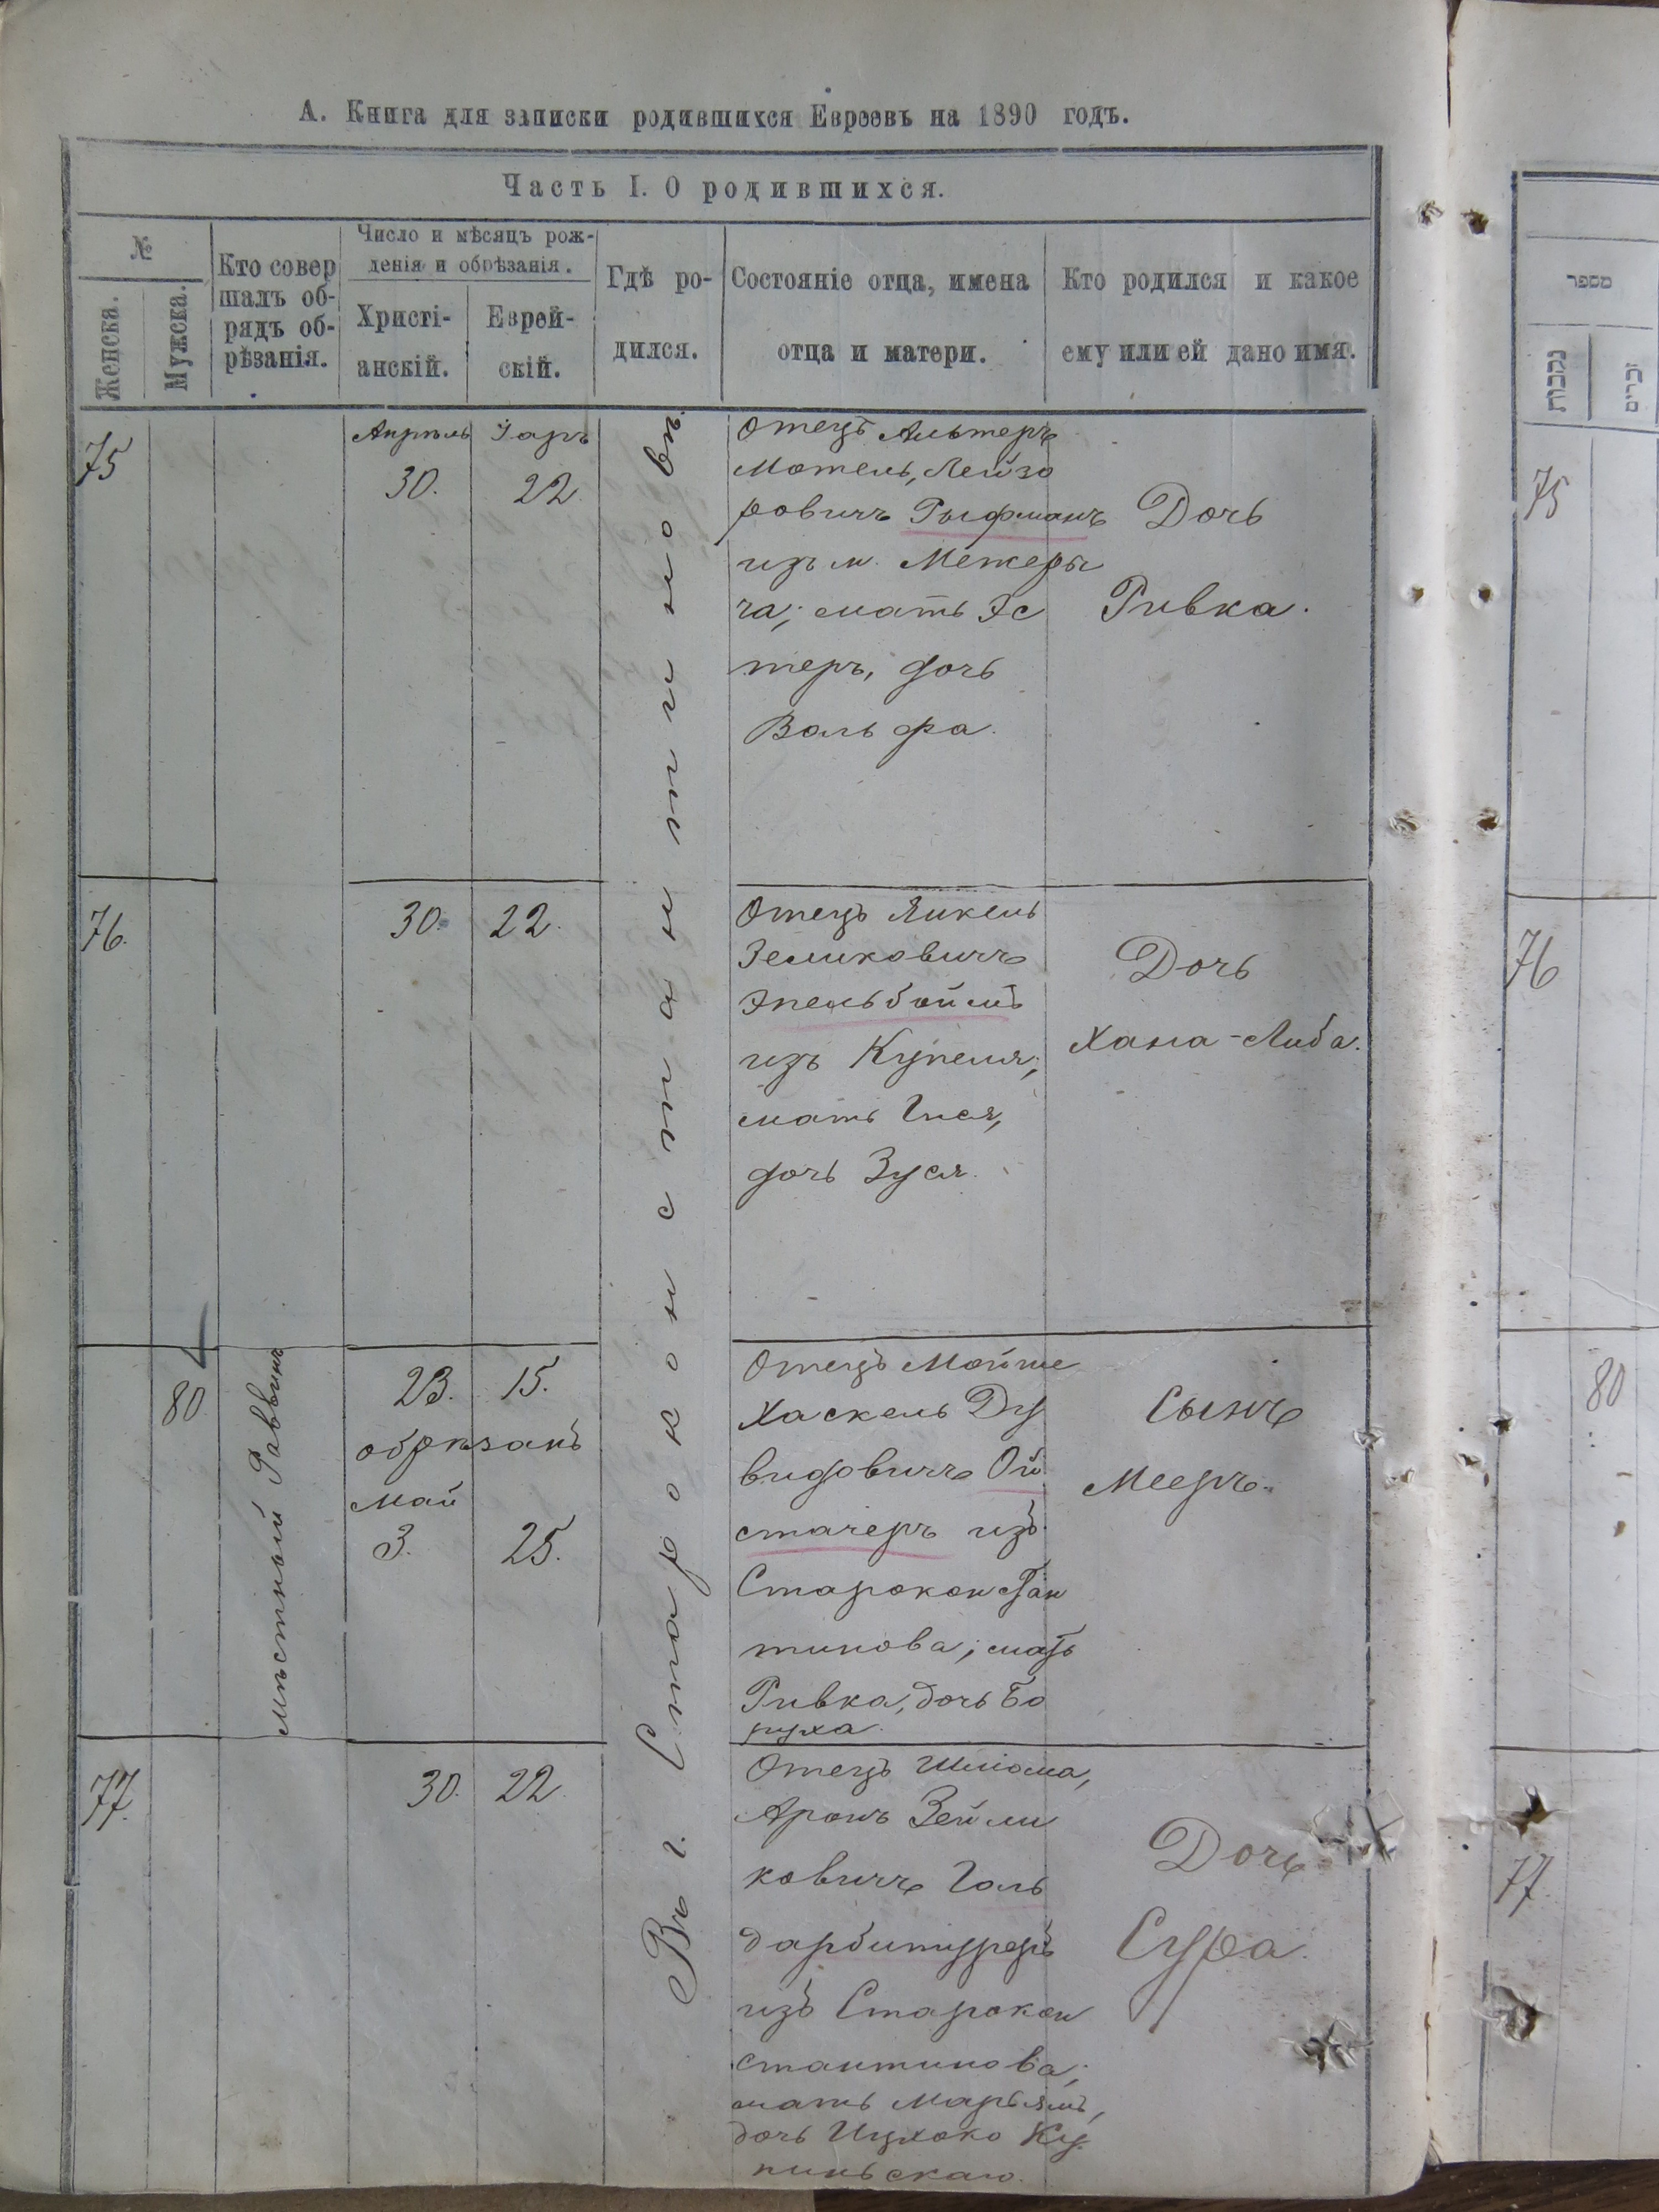 А. Книга для записки родившихся Евреевъ на 1890 годъ.
Часть I. О родившихся.
№
Женска.
Мужска.
Кто совер
шалъ об-
рядъ об-
рѣзанія.
Число и мѣсяцъ рож-
денія и обрѣзанія.
Христі-
анскій.
Еврей-
скій.
Гдѣ ро-
дился.
Состояніе отца, имена
отца и матери.
Кто родился и какое
ему или ей дано имя.
Въ г. Староконстантиновѣ.
75
Апрѣль Іаръ
30. 22.
Отецъ Альтеръ
Мотель, Лейзо
ровичъ Рыфманъ
изъ м. Межеры
ча; мать Эс
теръ, дочь
Вольфа.
Дочь
Ривка.
76.
30. 22.
Отецъ Янкель
Зеликовичъ
Эпельбоймъ
изъ Купеля;
мать Гися,
дочь Зуся.
Дочь
Хана-Либа.
80
Мѣстный Раввинъ
23. 15.
обрѣзанъ
Май
3. 25.
Отецъ Мойше
Хаскель Ду
видовичъ Ой
стачеръ изъ
Старокон стан
тинова; мать
Ривка, дочь Бо
руха.
Сынъ
Мееръ.
77.
30. 22.
Отецъ Шлиома,
Аронъ Зейли
ковичъ Голь
дарбитуреръ
изъ Старокон
стантинова;
мать Марьямъ,
дочь Ицхоко Ку
пиньскаго.
Дочь
Сура.
מספר
נקבות
זכרים
75
76
80
77.